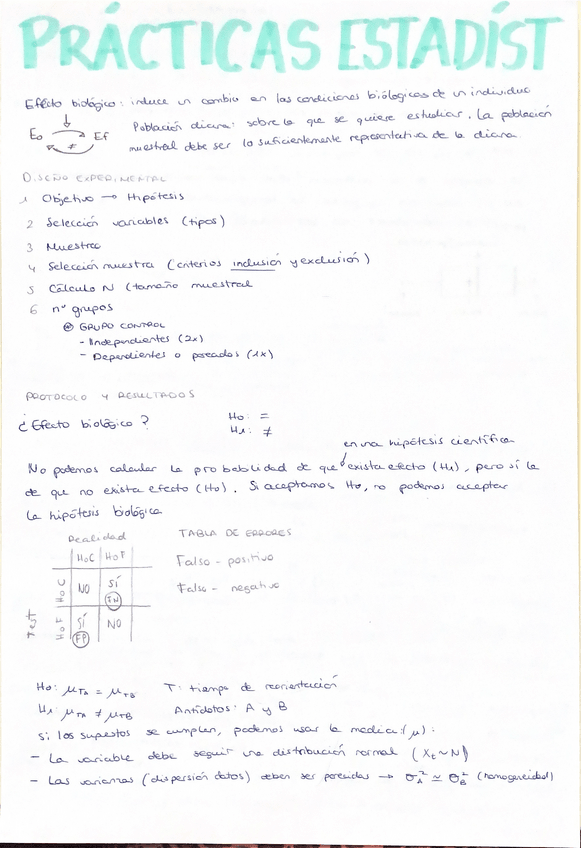 PRÁCTICAS ESTADÍST
Efecto biológico: induce un cambio en las condiciones biológicas de un individuo
E₀ ≠ Ef
Población diana: sobre la que se quiere estudiar. La población
muestral debe ser lo suficientemente representativa de la diana.
DISEÑO EXPERIMENTAL
1 Objetivo → Hipótesis
2 Selección variables (tipos)
3 Muestra
4 Selección muestra (criterios inclusión y exclusión)
5 Cálculo N (tamaño muestral
6 nº grupos
GRUPO CONTROL
- Independientes (2x)
- Dependientes o pareados (1x)
PROTOCOLO Y RESULTADOS
¿Efecto biológico?
H₀: =
H₁: ≠
en una hipótesis científica
No podemos calcular la probabilidad de que exista efecto (H₁), pero sí la
de que no exista efecto (H₀). Si aceptamos H₀, no podemos aceptar
la hipótesis biológica
Realidad
TABLA DE ERRORES
H₀C H₀F
Falso - positivo
H₀C NO SÍ
Falso - negativo
FN
Test H₀F SÍ NO
FP
H₀: μTA = μTB T: tiempo de reorientación
H₁: μTA ≠ μTB Antídotos: A y B
Si los supuestos se cumplen, podemos usar la media (μ):
- La variable debe seguir una distribución normal (Xₜ ~ N)
- Las varianzas (dispersión datos) deben ser parecidas → σ²A ≃ σ²B (homogeneidad)